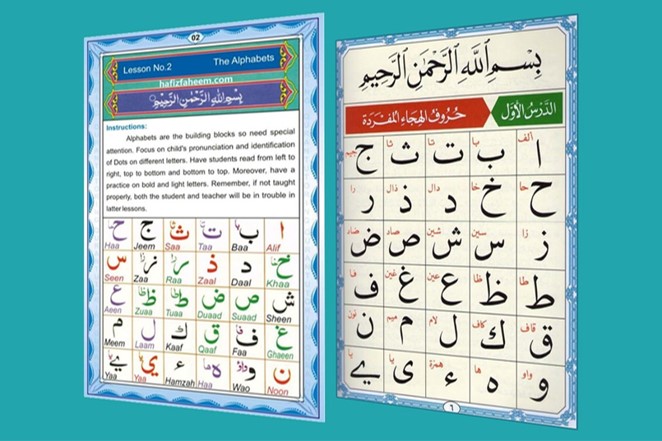 02
Lesson No.2 The Alphabets
hafizfaheem.com
بِسْمِ اللهِ الرَّحْمٰنِ الرَّحِيْمِ
Instructions:
Alphabets are the building blocks so need special
attention. Focus on child's pronunciation and identification
of Dots on different letters. Have students read from left to
right, top to bottom and bottom to top. Moreover, have a
practice on bold and light letters. Remember, if not taught
properly, both the student and teacher will be in trouble in
latter lessons.
ا ب ت ث ج ح
Haa Jeem Saa Taa Baa Alif
خ د ذ ر ز س
Seen Zaa Raa Zaal Daal Khaa
ش ص ض ط ظ ع
Aeen Zuaa Tuaa Duaad Suaad Sheen
غ ف ق ك ل م
Meem Laam Kaaf Qaaf Faa Ghaeen
ن و ه ء ي ے
Yaa Yaa Hamzah Haa Wao Noon
بِسْمِ اللَّهِ الرَّحْمَٰنِ الرَّحِيمِ
الدَّرْسُ الأَوَّل حُرُوفُ الهِجَاءِ المُفْرَدَة
الف با تا ثا جيم
ا ب ت ث ج
حا خا دال ذال را
ح خ د ذ ر
زا سين شين صاد ضاد
ز س ش ص ض
طا ظا عين غين فا
ط ظ ع غ ف
قاف كاف لام ميم نون
ق ك ل م ن
واو ها همزة يا يا
و ه ء ى ے
٦